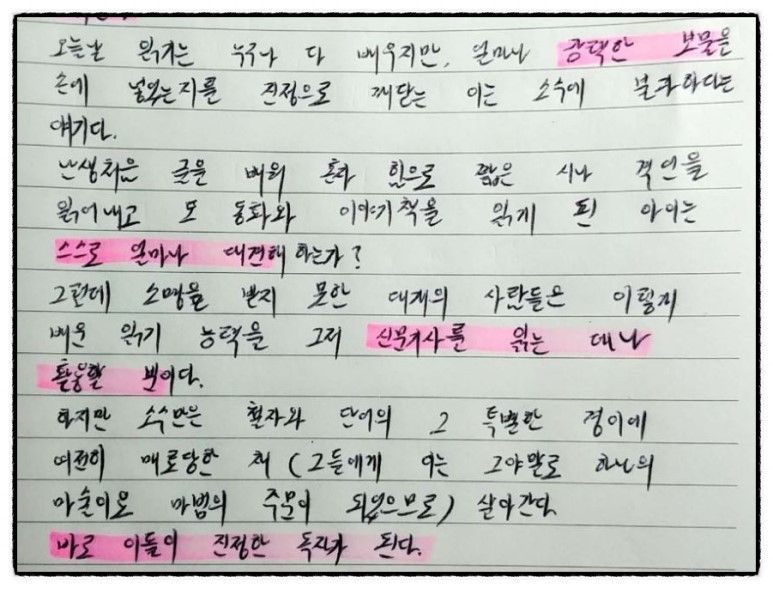 오늘날 읽기는 누구나 다 배우지만, 얼마나 강력한 보물을
손에 넣었는지를 진정으로 깨닫는 이는 소수에 불과하다는
얘기다.
난생처음 글을 배워 혼자 힘으로 짧은 시나 격언을
읽어내고 또 동화와 이야기책을 읽게 된 아이는
스스로 얼마나 대견해 하는가?
그런데 소명을 받지 못한 대개의 사람들은 이렇게
배운 읽기 능력을 그저 신문기사를 읽는 데나
활용할 뿐이다.
하지만 소수만은 철자와 단어의 그 특별한 경이에
여전히 매료당한 채 (그들에게 이는 그야말로 하나의
마술이요 마법의 주문이 되었으므로) 살아간다.
바로 이들이 진정한 독자가 된다.